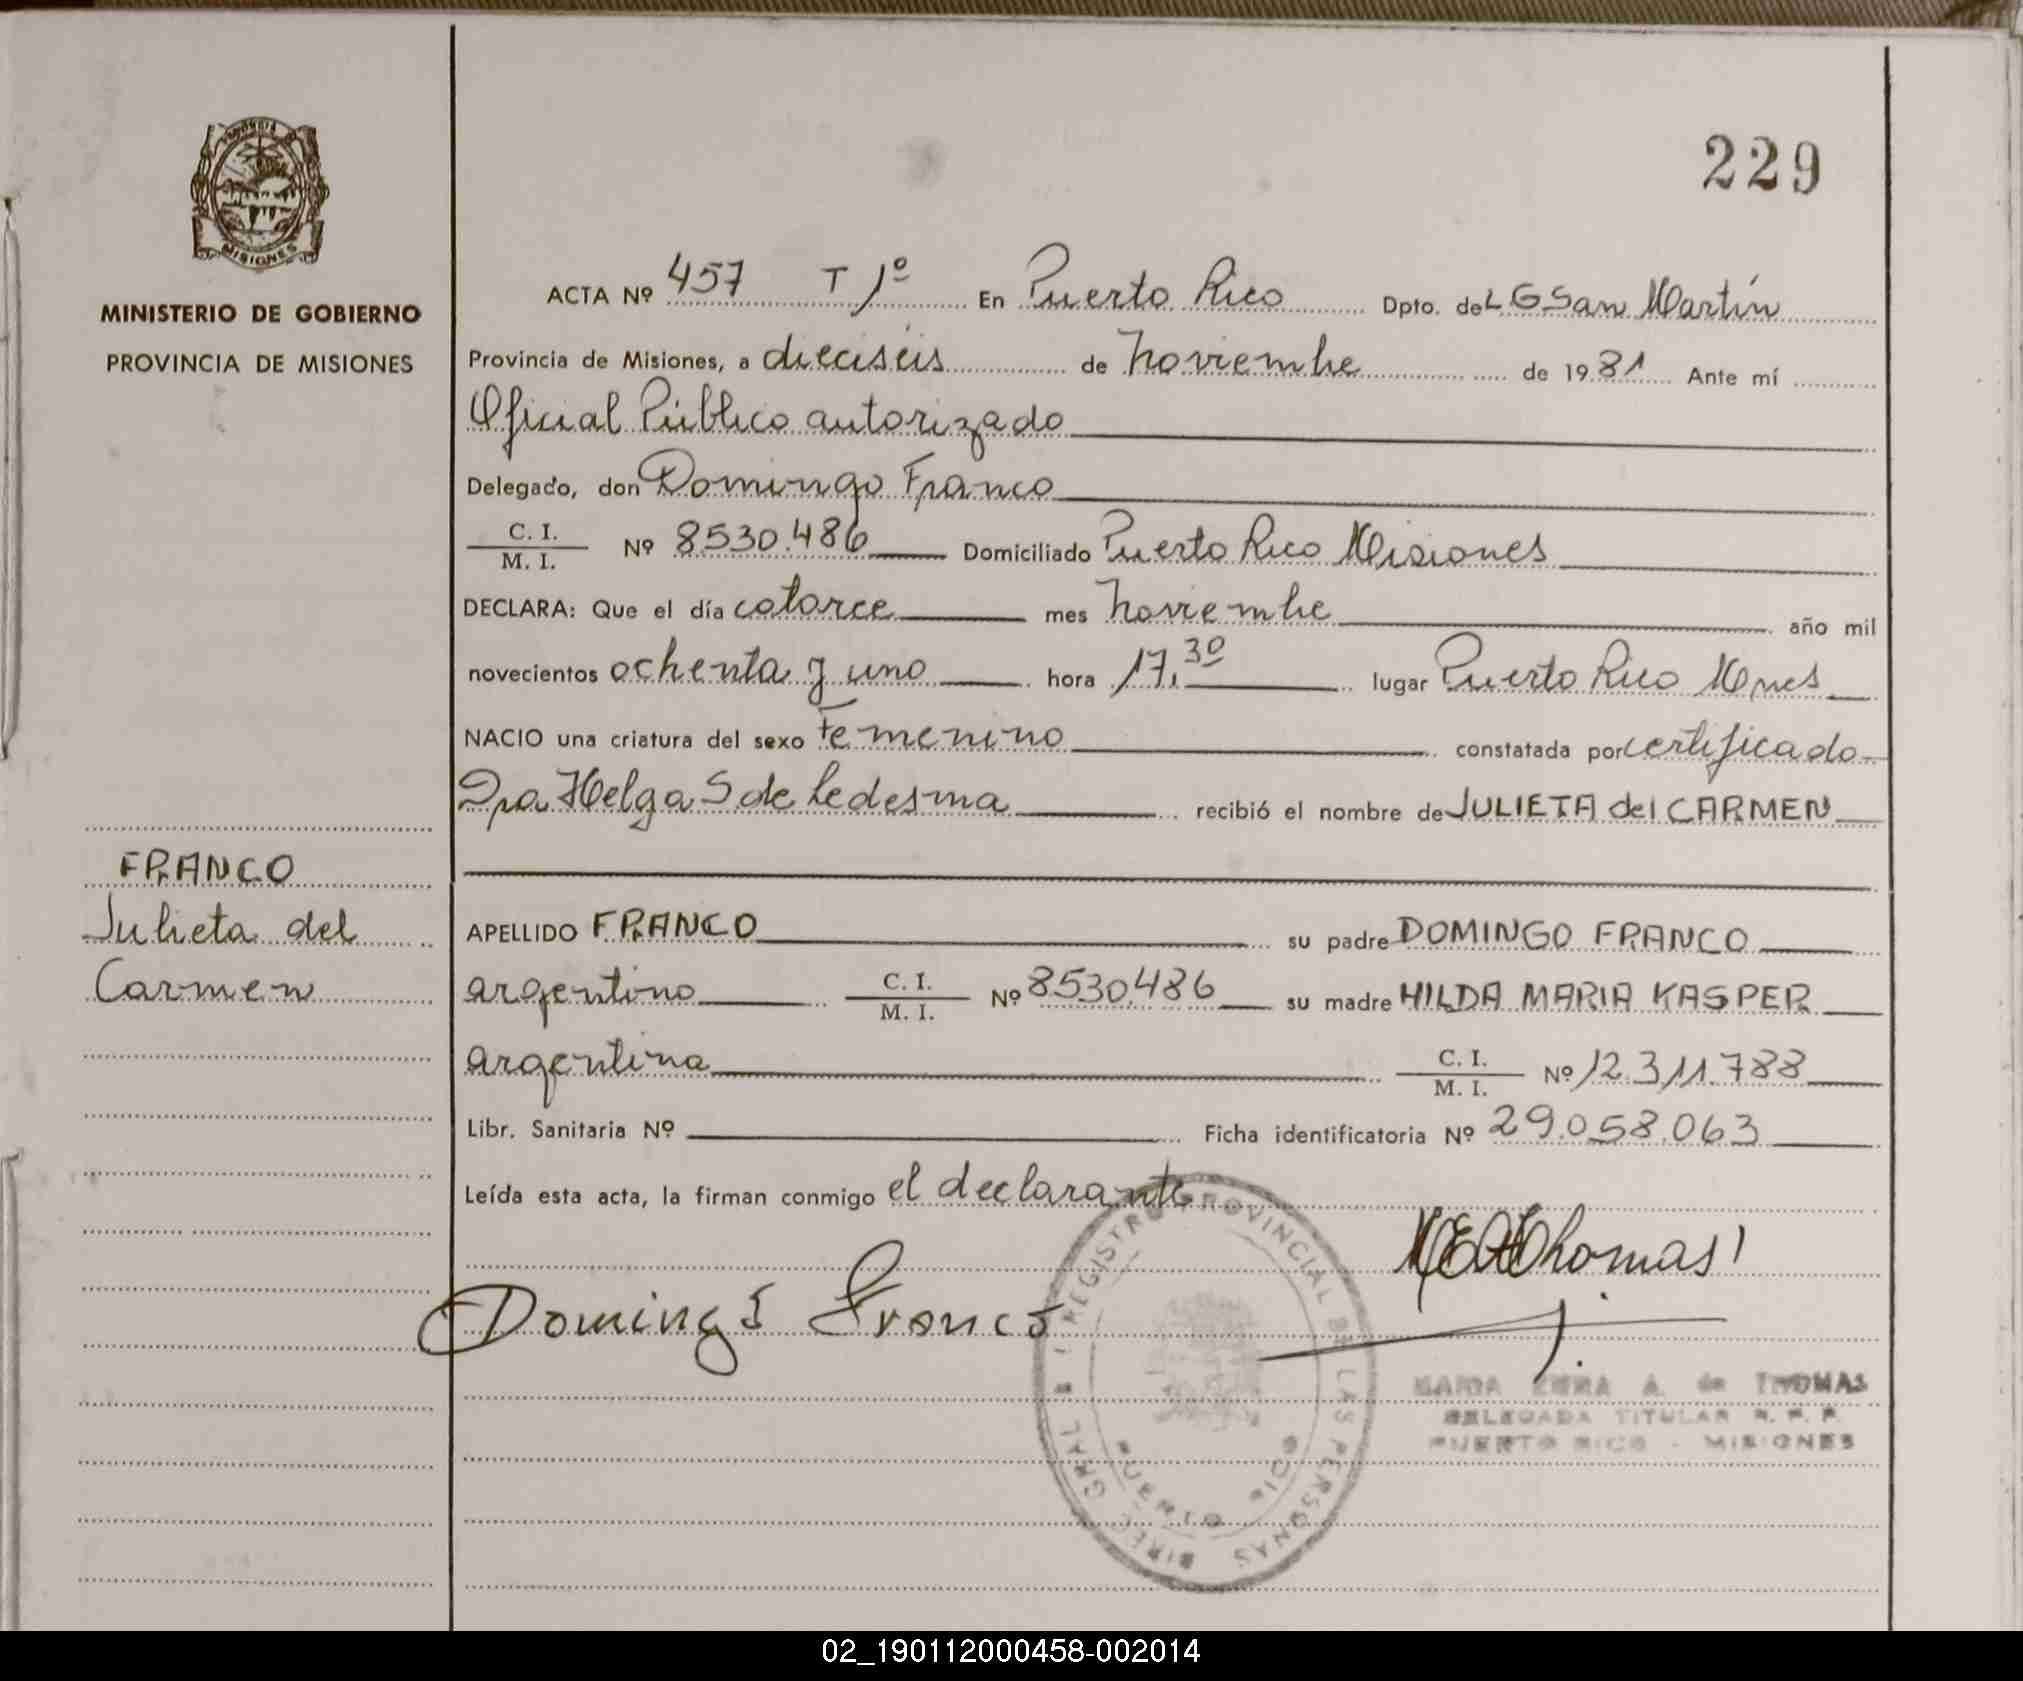 229
PROVINCIA
MISIONES
MINISTERIO DE GOBIERNO
PROVINCIA DE MISIONES
ACTA Nº 457 T 1º En Puerto Rico Dpto. de L G San Martín
Provincia de Misiones, a dieciséis de noviembre de 1981 Ante mí
Oficial Público autorizado
Delegado, don Domingo Franco
C. I.
M. I. Nº 8530.486 Domiciliado Puerto Rico Misiones
DECLARA: Que el día catorce mes noviembre año mil
novecientos ochenta y uno hora 17,30 lugar Puerto Rico Mnes
NACIO una criatura del sexo femenino constatada por certificado
Dra Helga S de Ledesma recibió el nombre de JULIETA del CARMEN
FRANCO
Julieta del
Carmen
APELLIDO FRANCO su padre DOMINGO FRANCO
argentino C. I.
M. I. Nº 8530.486 su madre HILDA MARIA KASPER
argentina C. I.
M. I. Nº 12.311.788
Libr. Sanitaria Nº Ficha identificatoria Nº 29.058.063
Leída esta acta, la firman conmigo el declarante
Domingo Franco
MEAThomas
DIREC. GRAL. REGISTRO PROVINCIAL DE LAS PERSONAS
PUERTO RICO
MARIA A. de THOMAS
DELEGADA TITULAR R. P. P.
PUERTO RICO - MISIONES
02_190112000458-002014